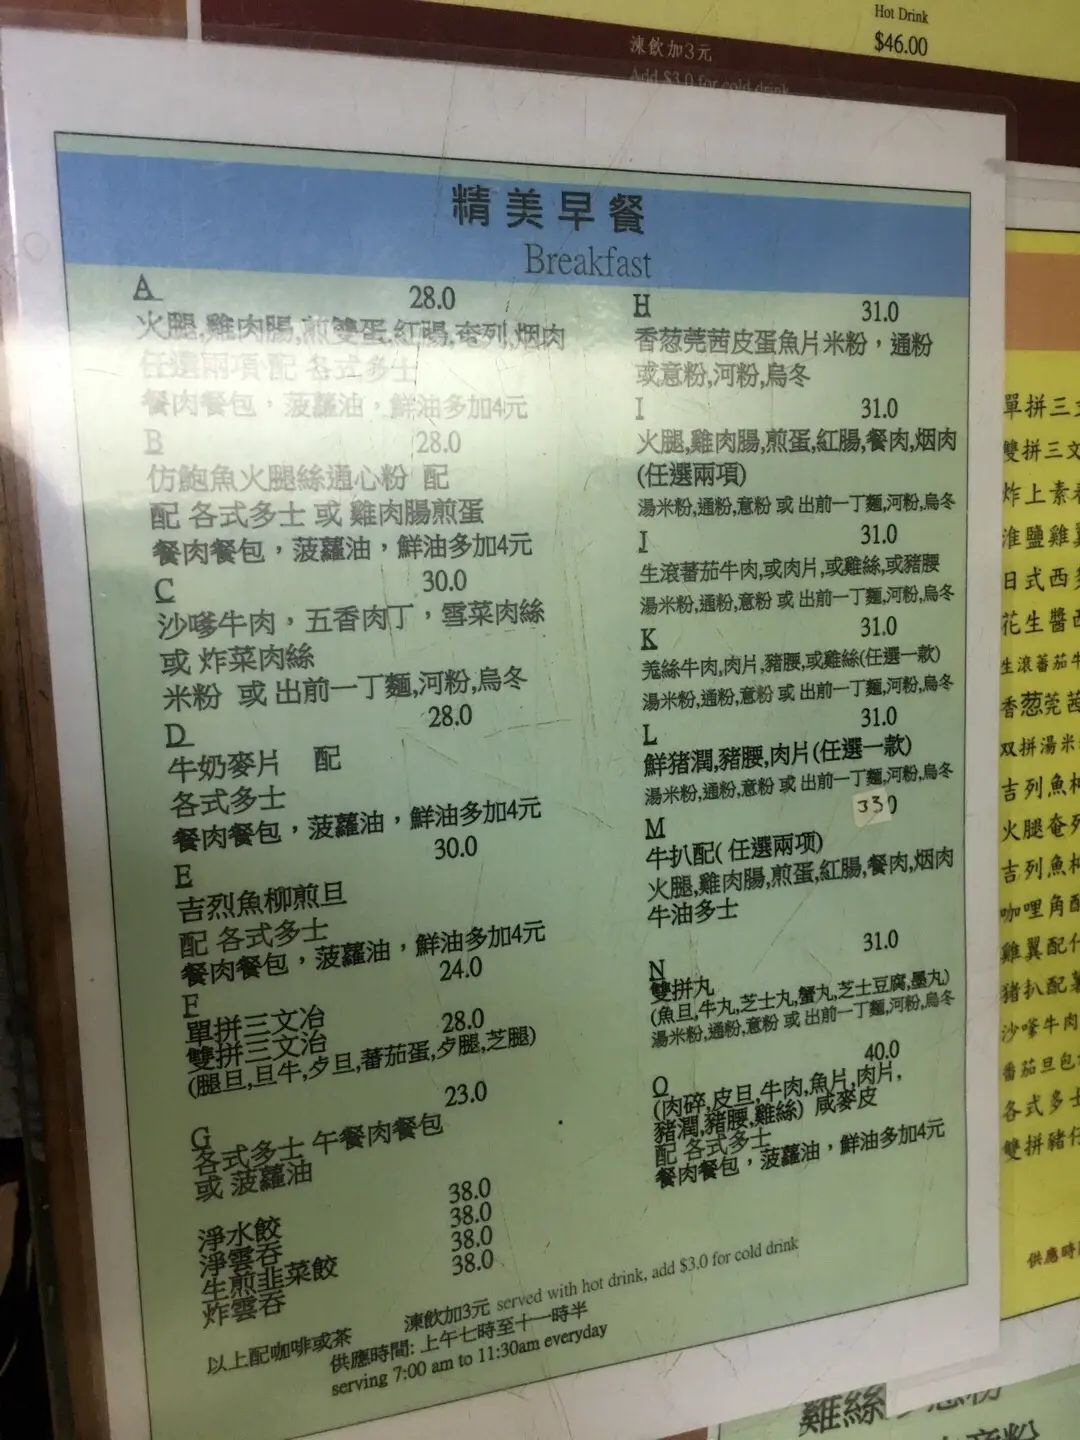 Hot Drink
$46.00
涷飲加3元
Add $3.0 for cold drink
精美早餐
Breakfast
A 28.0
火腿,雞肉腸,煎雙蛋,紅腸,奄列,烟肉
任選兩項 配 各式多士
餐肉餐包，菠蘿油，鮮油多加4元
B 28.0
仿鮑魚火腿絲通心粉 配
配 各式多士 或 雞肉腸煎蛋
餐肉餐包，菠蘿油，鮮油多加4元
C 30.0
沙嗲牛肉，五香肉丁，雪菜肉絲
或 炸菜肉絲
米粉 或 出前一丁麵,河粉,烏冬
D 28.0
牛奶麥片 配
各式多士
餐肉餐包，菠蘿油，鮮油多加4元
E 30.0
吉烈魚柳煎旦
配 各式多士
餐肉餐包，菠蘿油，鮮油多加4元
F 24.0
單拼三文冶
雙拼三文治 28.0
(腿旦,旦牛,夕旦,蕃茄蛋,夕腿,芝腿)
G 23.0
各式多士 午餐肉餐包
或 菠蘿油
淨水餃 38.0
淨雲吞 38.0
生煎韭菜餃 38.0
炸雲吞 38.0
H 31.0
香葱莞茜皮蛋魚片米粉，通粉
或意粉,河粉,烏冬
I 31.0
火腿,雞肉腸,煎蛋,紅腸,餐肉,烟肉
(任選兩項)
湯米粉,通粉,意粉 或 出前一丁麵,河粉,烏冬
J 31.0
生滾蕃茄牛肉,或肉片,或雞絲,或豬腰
湯米粉,通粉,意粉 或 出前一丁麵,河粉,烏冬
K 31.0
羗絲牛肉,肉片,豬腰,或雞絲(任選一款)
湯米粉,通粉,意粉 或 出前一丁麵,河粉,烏冬
L 31.0
鮮猪潤,豬腰,肉片(任選一款)
湯米粉,通粉,意粉 或 出前一丁麵,河粉,烏冬
M 330
牛扒配( 任選兩项)
火腿,雞肉腸,煎蛋,紅腸,餐肉,烟肉
牛油多士
N 31.0
雙拼丸
(魚旦,牛丸,芝士丸,蟹丸,芝士豆腐,墨丸)
湯米粉,通粉,意粉 或 出前一丁麵,河粉,烏冬
O 40.0
(肉碎,皮旦,牛肉,魚片,肉片,
豬潤,豬腰,雞絲) 咸麥皮
配 各式多士
餐肉餐包，菠蘿油，鮮油多加4元
以上配咖啡或茶
涷飲加3元 served with hot drink, add $3.0 for cold drink
供應時間: 上午七時至十一時半
serving 7:00 am to 11:30am everyday
單拼三文
雙拼三文
炸上素
淮鹽雞
日式西
花生醬
生滾蕃茄牛
香葱莞茜
双拼湯米
吉列魚柳
火腿奄列
吉列魚柳
咖哩角配
雞翼配
猪扒配
沙嗲牛肉
番茄旦包
各式多士
雙拼豬仔
供應時間
雞絲